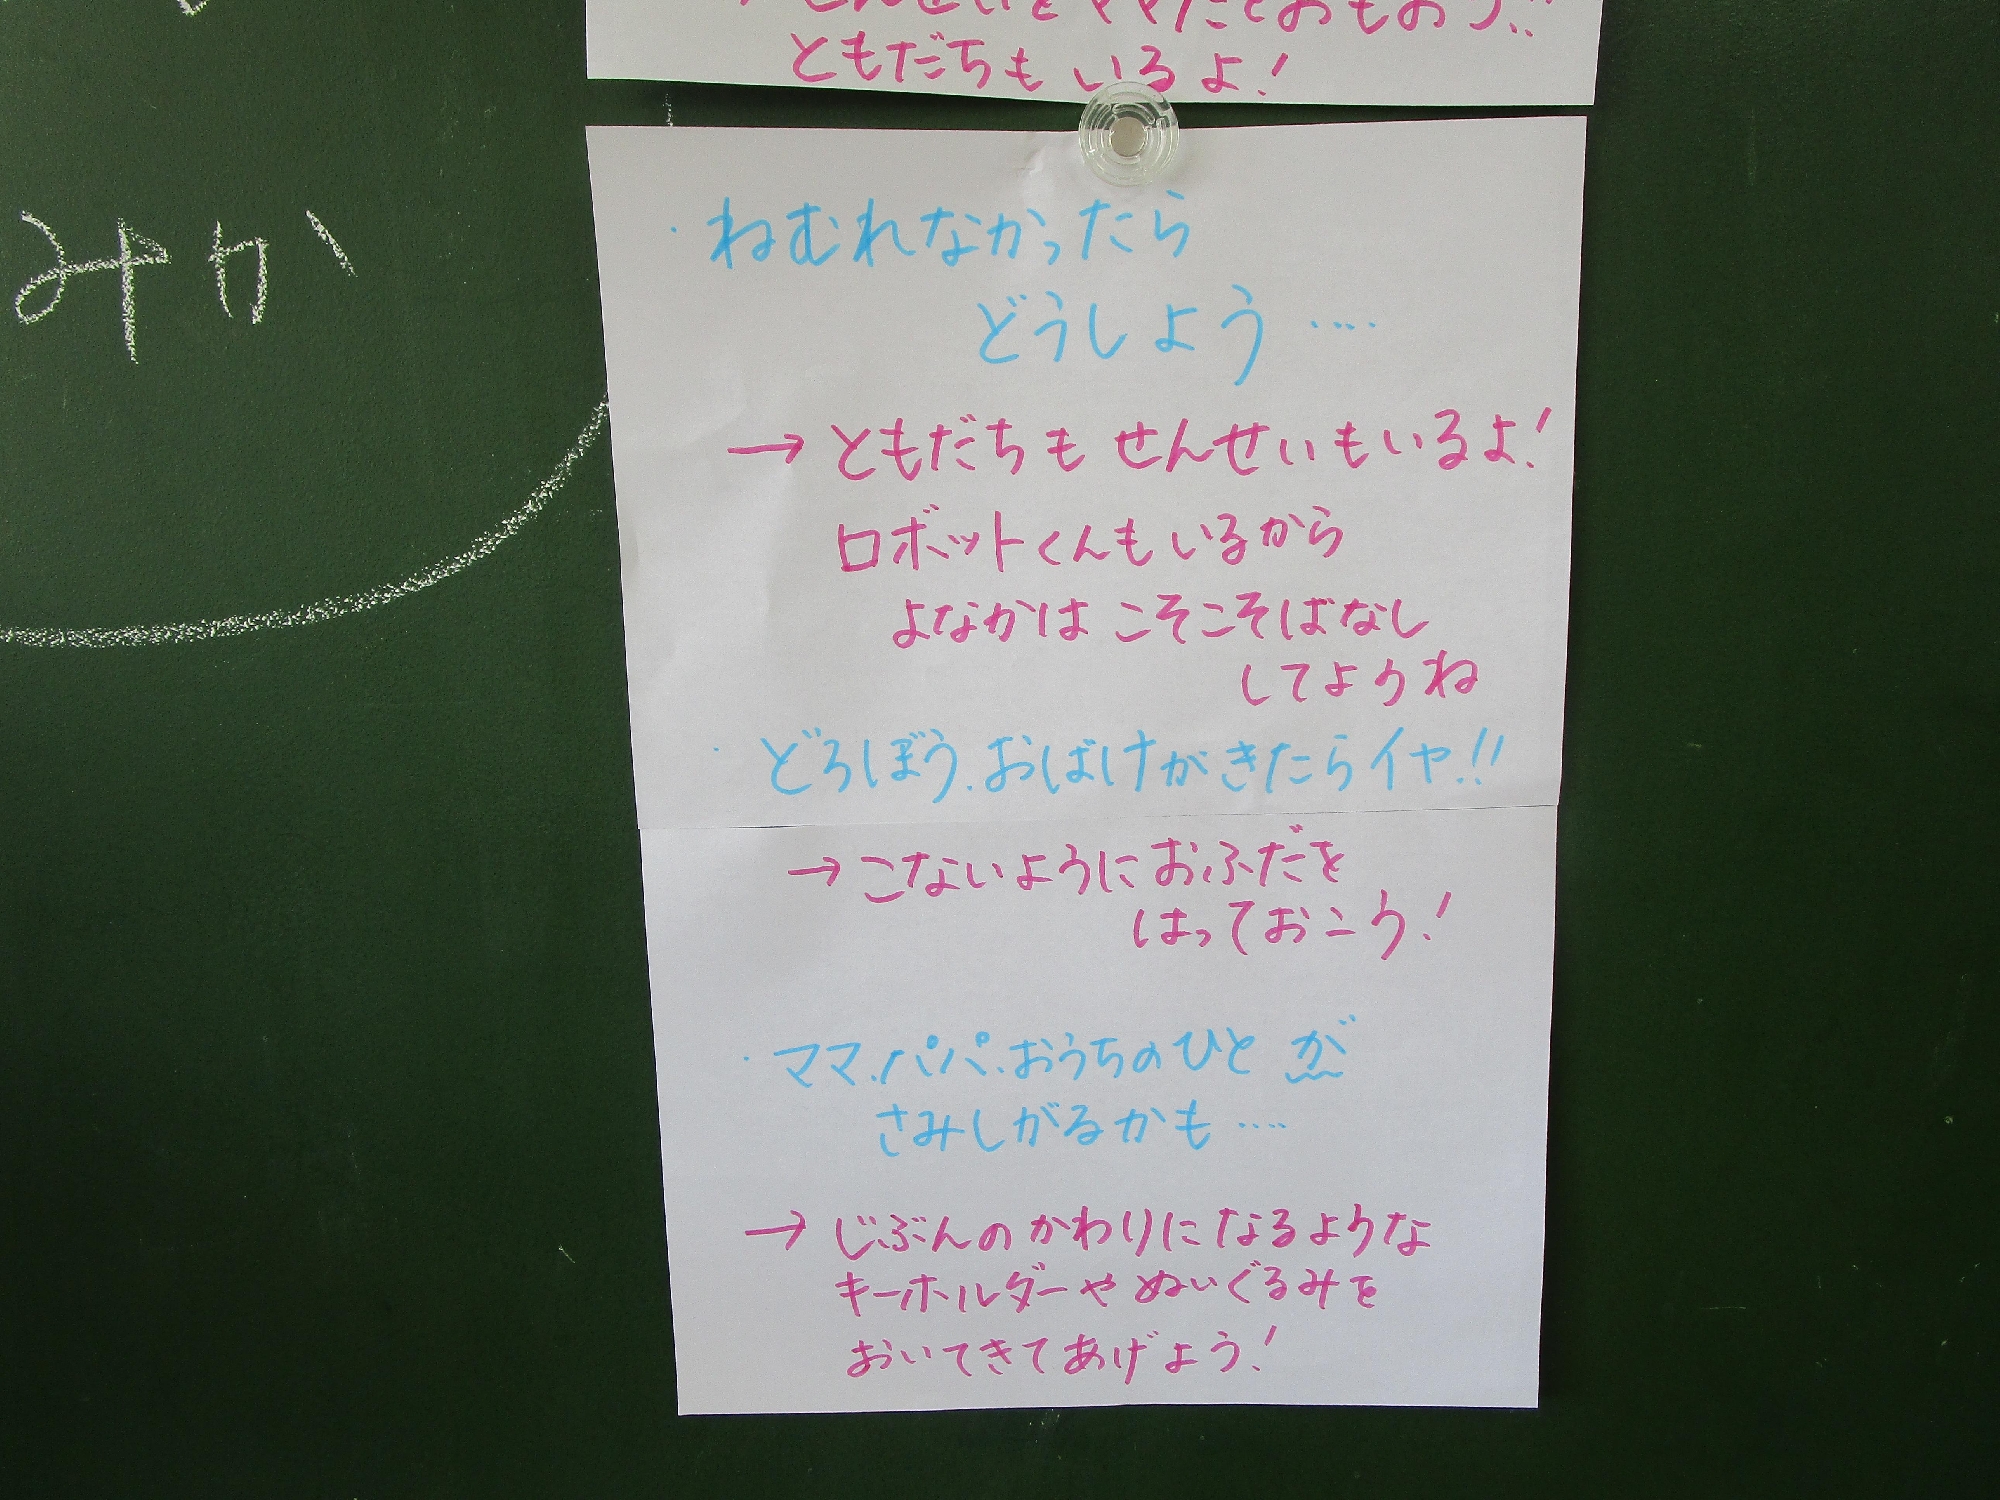 せんせいをママだとおもおう!!
ともだちも いるよ!
みか
・ねむれなかったら
どうしよう ‥‥
→ ともだちも せんせいもいるよ!
ロボットくんもいるから
よなかは こそこそばなし
してようね
・どろぼう.おばけがきたらイヤ!!
→こないようにおふだを
はっておこう!
・ママ.パパ.おうちのひと が
さみしがるかも‥‥
→ じぶんのかわりになるような
キーホルダーやぬいぐるみを
おいてきてあげよう!